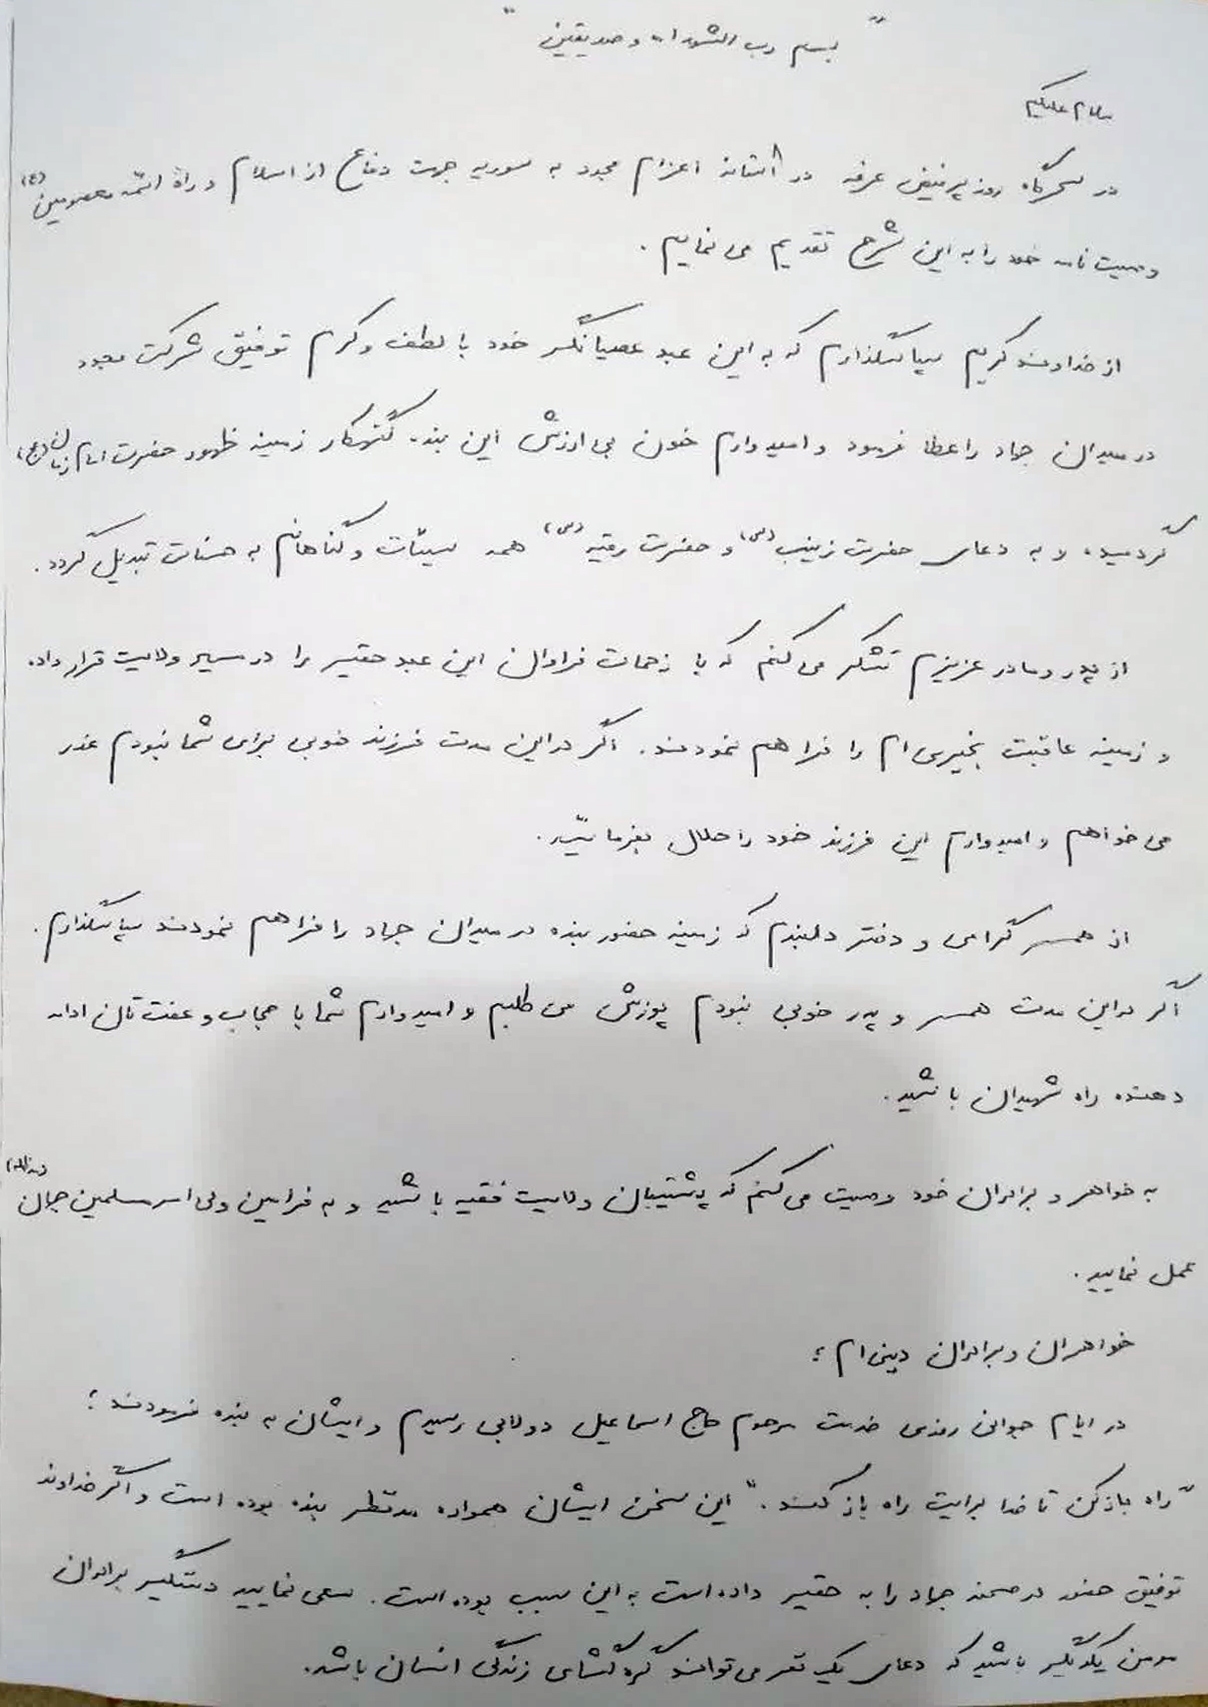 " بسم رب الشهداء و صدیقین "
سلام علیکم
در سحرگاه روز پرفیض عرفه در آستانه اعزام مجدد به سوریه جهت دفاع از اسلام و راه ائمه معصومین (ع)
وصیت نامه خود را به این شرح تقدیم می نمایم .
از خداوند کریم سپاسگذارم که به این عبد عصیانگر خود با لطف و کرم توفیق شرکت مجدد
در میدان جهاد را عطا فرمود و امیدوارم خون بی ارزش این بنده گنهکار زمینه ظهور حضرت امام زمان (عج)
گردیده و به دعای حضرت زینب (س) و حضرت رقیه (س) همه سیئات و گناهانم به حسنات تبدیل گردد .
از پدر و مادر عزیزم تشکر می کنم که با زحمات فراوان این عبد حقیر را در مسیر ولایت قرار داده
و زمینه عاقبت بخیری ام را فراهم نمودند . اگر در این مدت فرزند خوبی برای شما نبودم عذر
می خواهم و امیدوارم این فرزند خود را حلال بفرمائید .
از همسر گرامی و دختر دلبندم که زمینه حضور بنده در میدان جهاد را فراهم نمودند سپاسگذارم .
اگر در این مدت همسر و پدر خوبی نبودم پوزش می طلبم و امیدوارم شما با حجاب و عفت تان ادامه
دهنده راه شهیدان باشید .
به خواهر و برادران خود وصیت می کنم که پشتیبان ولایت فقیه باشید و به فرامین ولی امر مسلمین جهان (مدظله)
عمل نمایید .
خواهران و برادران دینی ام ؛
در ایام جوانی روزی خدمت مرحوم حاج اسماعیل دولابی رسیدم و ایشان به بنده فرمودند ؛
" راه باز کن تا خدا برایت راه باز کند . " این سخن ایشان همواره مدنظر بنده بوده است و اگر خداوند
توفیق حضور در صحنه جهاد را به حقیر داده است به این سبب بوده است . سعی نمایید دستگیر برادران
مومن یکدیگر باشید که دعای یک نفر می تواند گره گشای زندگی انسان باشد .